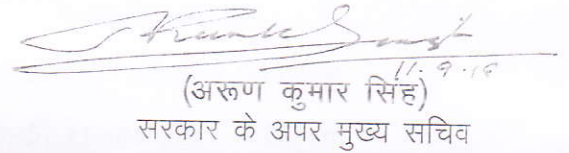 11.9.18
(अरूण कुमार सिंह)
सरकार के अपर मुख्य सचिव